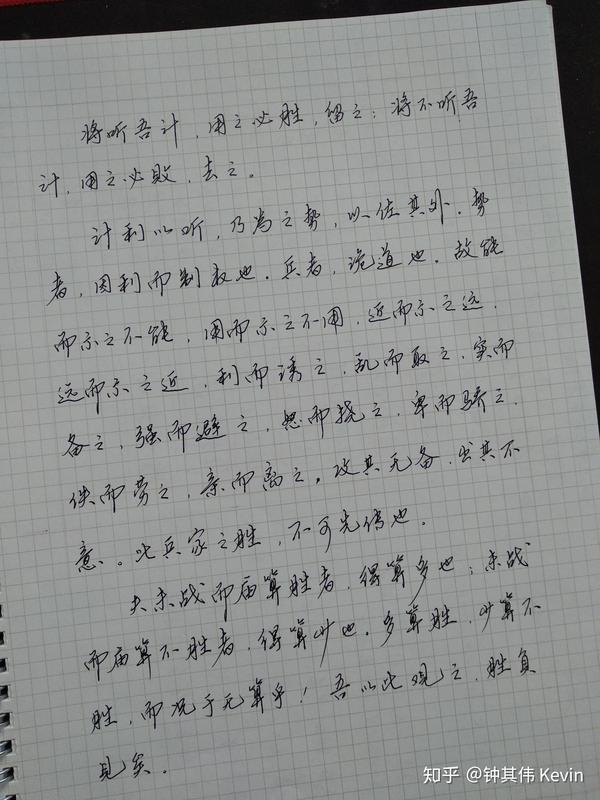 将听吾计，用之必胜，留之；将不听吾
计，用之必败，去之。
计利以听，乃为之势，以佐其外。势
者，因利而制权也。兵者，诡道也。故能
而示之不能，用而示之不用，近而示之远，
远而示之近，利而诱之，乱而取之，实而
备之，强而避之，怒而挠之，卑而骄之，
佚而劳之，亲而离之。攻其无备，出其不
意。此兵家之胜，不可先传也。
夫未战而庙算胜者，得算多也；未战
而庙算不胜者，得算少也。多算胜，少算不
胜，而况于无算乎！吾以此观之，胜负
见矣。
知乎 @钟其伟 Kevin